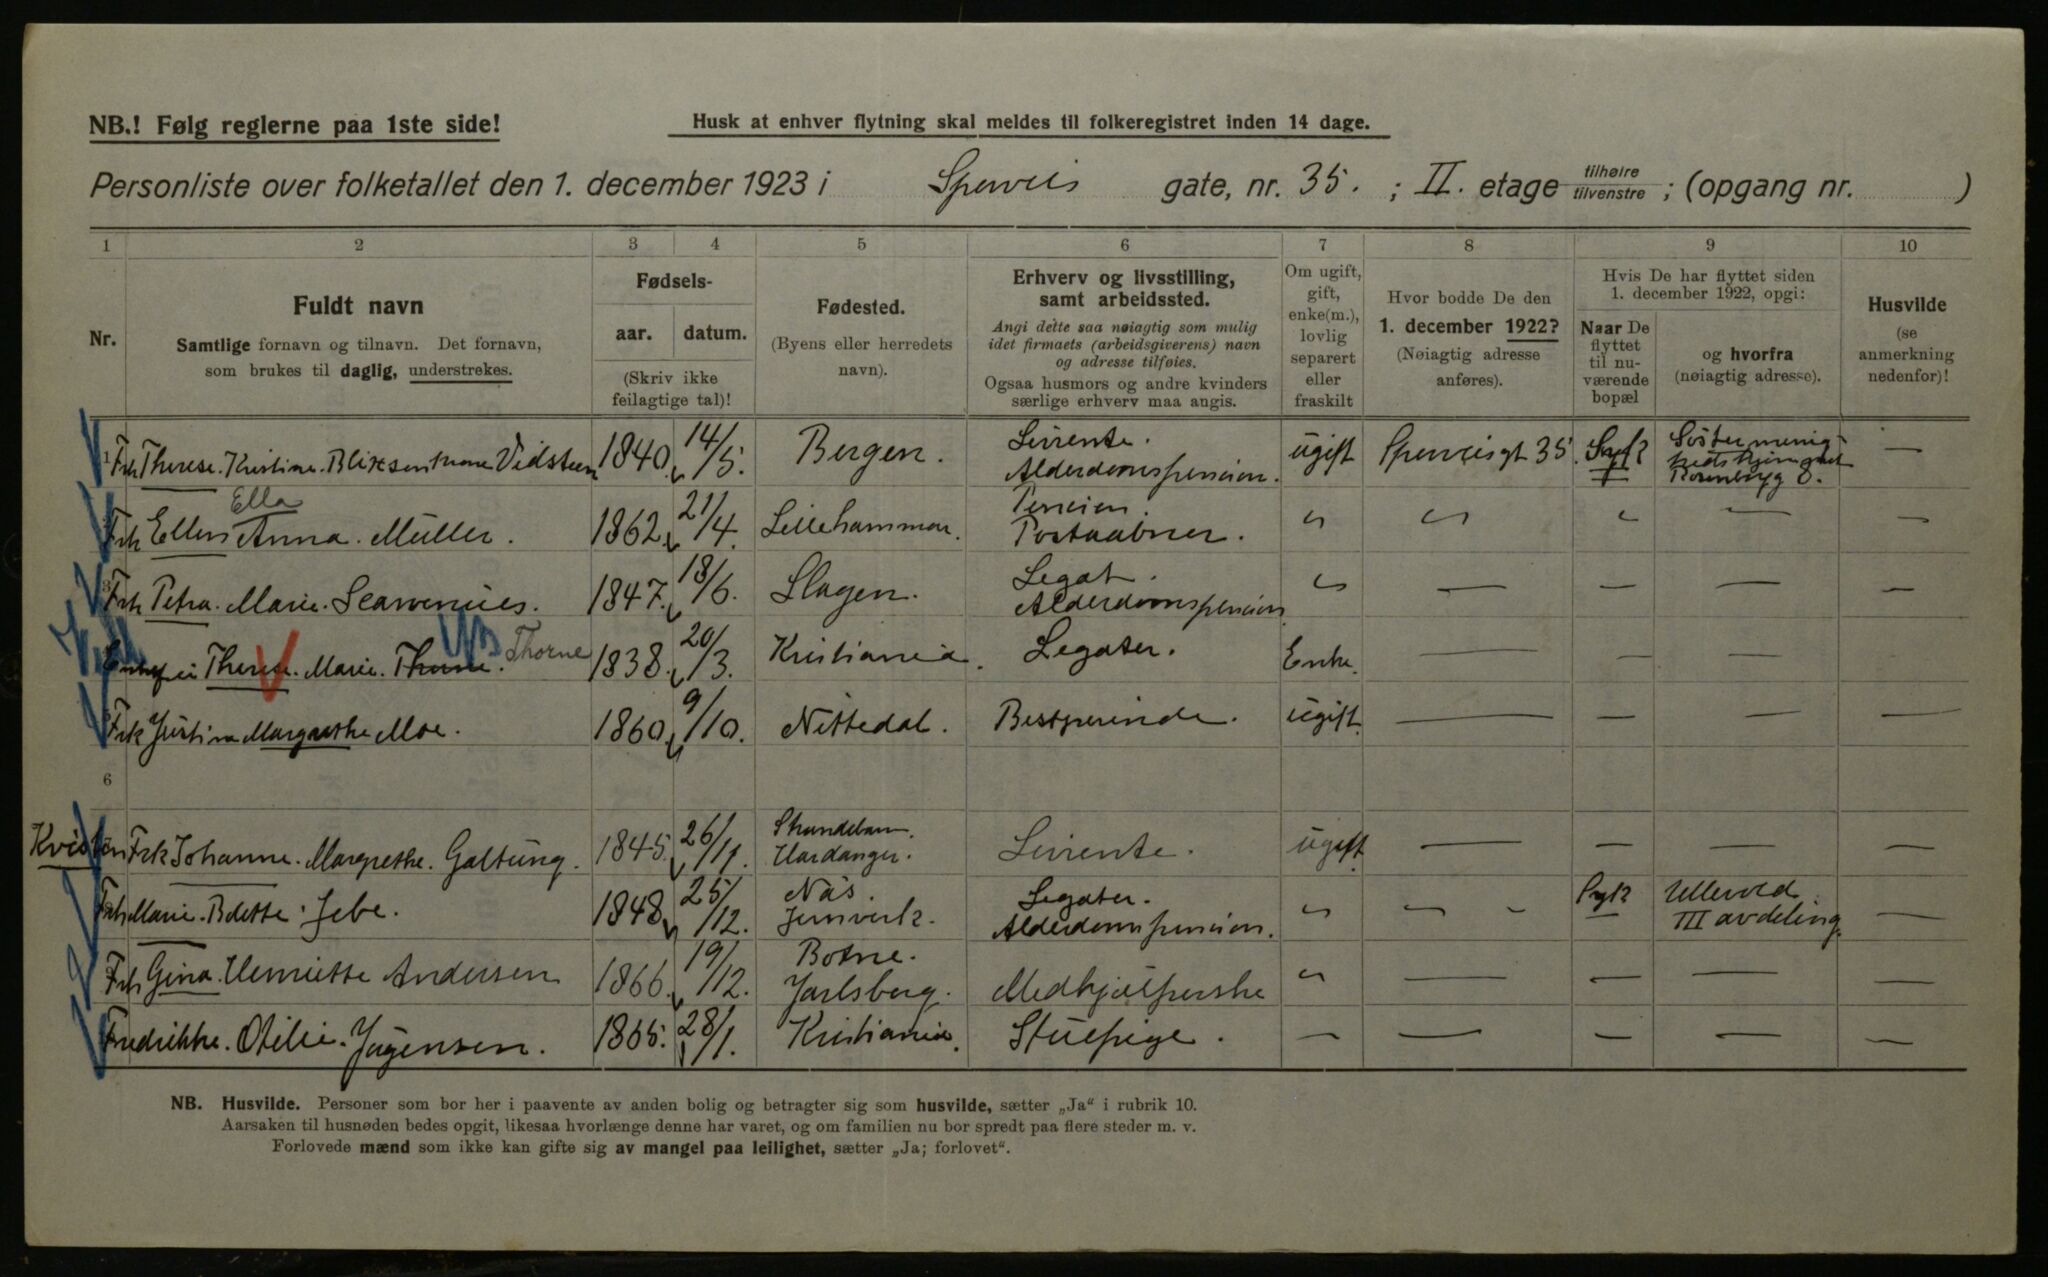 NB.! Følg reglerne paa 1ste side!
Husk at enhver flytning skal meldes til folkeregistret inden 14 dage.
Personliste over folketallet den 1. december 1923 i Sporveis gate, nr. 35. ; II. etage tilhøire tilvenstre ; (opgang nr. )
1 2 3 4 5 6 7 8 9 10
Nr.
Fuldt navn
Samtlige fornavn og tilnavn. Det fornavn,
som brukes til daglig, understrekes.
Fødsels-
aar. datum.
(Skriv ikke
feilagtige tal)!
Fødested.
(Byens eller herredets
navn).
Erhverv og livsstilling,
samt arbeidssted.
Angi dette saa nøiagtig som mulig
idet firmaets (arbeidsgiverens) navn
og adresse tilføies.
Ogsaa husmors og andre kvinders
særlige erhverv maa angis.
Om ugift,
gift,
enke(m.),
lovlig
separert
eller
fraskilt
Hvor bodde De den
1. december 1922?
(Nøiagtig adresse
anføres).
Hvis De har flyttet siden
1. december 1922, opgi:
Naar De
flyttet
til nu-
værende
bopæl
og hvorfra
(nøiagtig adresse).
Husvilde
(se
anmerkning
nedenfor)!
1 Frk Therese. Kristine. Vidsteen 1840. 14/5. Bergen. Livrente. Alderdomspension. ugift Sporveisgt 35. Syk —
Frk Ellen Ella Anna. Müller. 1862. 21/4. Lillehammer. Pension. Postaabner. " " " — —
3 Frk Petra. Marie. Scavenius. 1847. 18/6. Slagen. Legat. Alderdomspension " — — — —
Therese. Marie. Thorne 1838. 20/3. Kristiania. Legater. Enke. — — — —
Frk Justina Margrethe Moe. 1860. 9/10. Nittedal. Bestyrerinde. ugift. — — — —
6
Frk Johanne. Margrethe. Galtung. 1845. 26/11. Strandebarm. Hardanger. Livrente. ugift — — — —
Frk Marie. Bdette. Jebe. 1848. 25/12. Näs. Jernverk. Legater. Alderdomspension. " " " Syk Ullevold III avdeling. —
Frk Gina. Henriette Andersen 1866. 19/12. Botne. Jarlsberg. Medhjælperske " — — — —
Fredrikke. Otilie. Jügensen. 1865. 28/1. Kristiania. Stuepige. — — — — —
NB. Husvilde. Personer som bor her i paavente av anden bolig og betragter sig som husvilde, sætter „Ja“ i rubrik 10.
Aarsaken til husnøden bedes opgit, likesaa hvorlænge denne har varet, og om familien nu bor spredt paa flere steder m. v.
Forlovede mænd som ikke kan gifte sig av mangel paa leilighet, sætter „Ja; forlovet“.